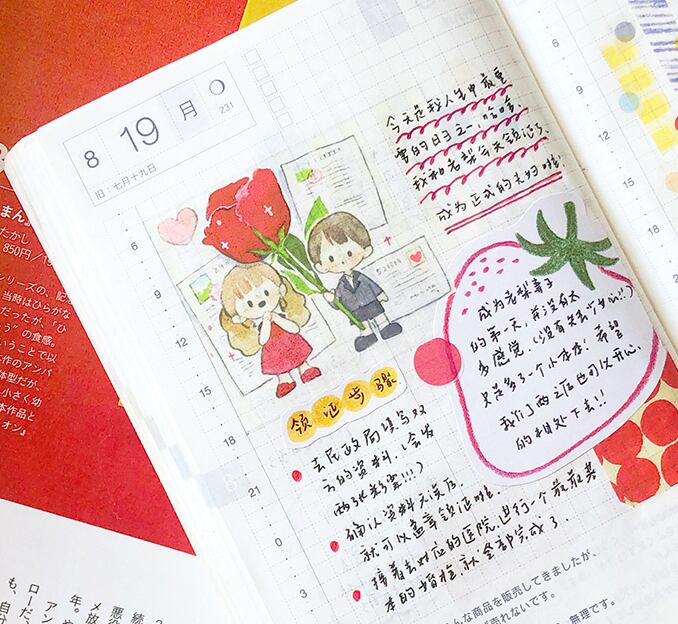 8
19
月
231
旧:七月十九日
今天是我人生中最重
要的日子之一,哈哈哈
我和老梨今天领证了,
成为正式的夫妇啦!
6
9
12
15
18
21
0
3
成为老梨妻子
的第一天,并没有太
多感觉,(没有失去少女心!!)
只是多了一个小本本!希望
我们两之后也可以开心
的相处下去!!
领证步骤
去民政局填写双
方的资料.(会发
两张彩票!!!)
确认资料无误后,
就可以盖章领证啦.
接着去对应的医院,进行一个最最基
本的婚检,就全部完成了.
6
9
12
15
まん』
たかし
850円/15
シリーズの、記
当時はひらがな
だったが、『ひ
う"の食感。
いうことで以
作のアンパ
体型だが、
小さく幼
本作品と
オン』
んな商品を販売してきましたが、
売れないです。
無理です。